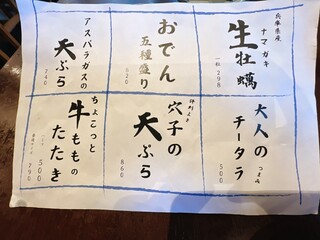 兵庫県産
ナマガキ
生牡蠣
一粒 298
おでん
五種盛り
620
アスパラガスの
天ぷら
740
大人の
チータラ
500
穴子の
天ぷら
860
ちょこっと
牛ももの
たたき
500
790